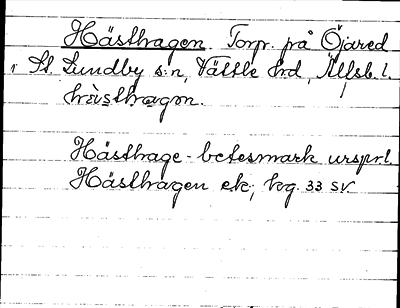 Hästhagen. Torp. på Öjared
i St. Lundby s:n, Vättle hd, Älfsb. l.
hästhagɷn.
Hästhage - betesmark urspr.l.
Hästhagen ek; hg. 33 SV